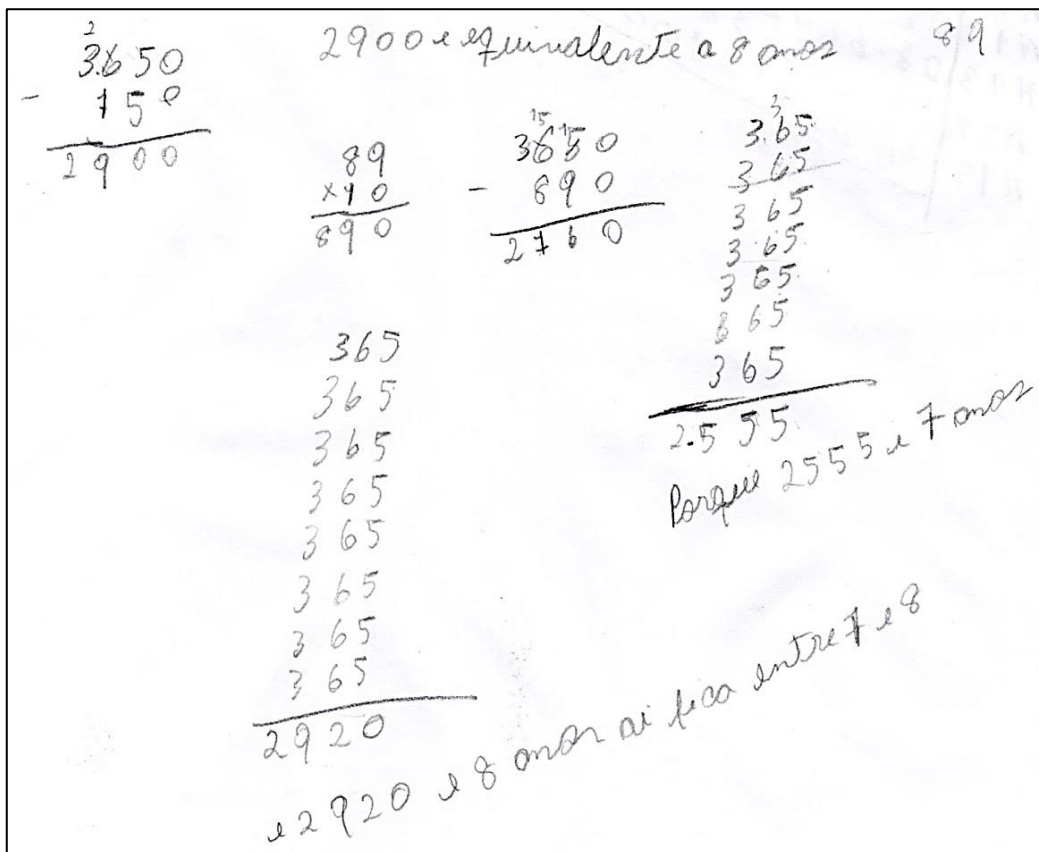 2900 e equivalente a 8 anos
89
2
3.650
- 750
2900
89
x10
890
15 15
3650
- 890
2760
3
3.65
365
365
365
365
365
365
2.555
Porque 2555 e 7 anos
365
365
365
365
365
365
365
365
2920
e 2920 e 8 anos ai fica entre 7 e 8